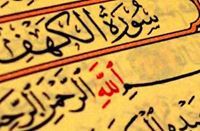 سُورَةُ الْكَهْفِ
اللَّهِ الرَّحْمَٰنِ الرَّحِيمِ